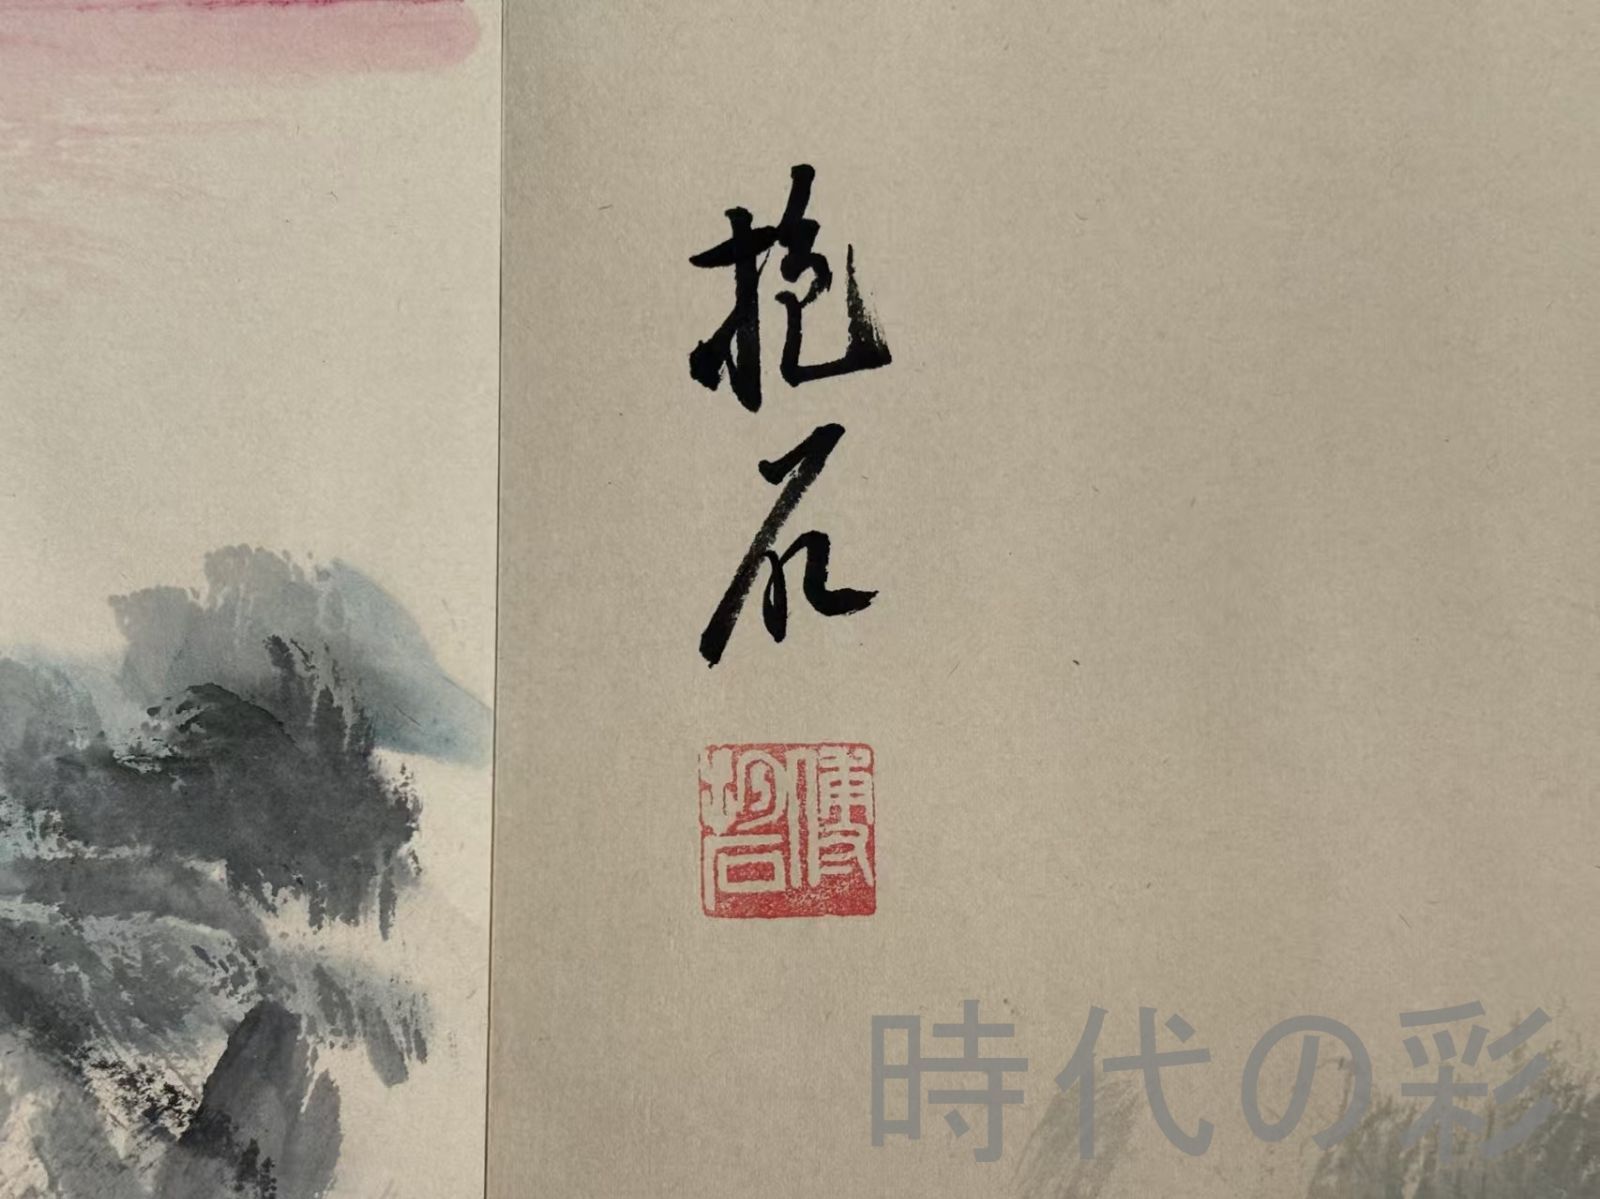 抱石
傅抱石
時代の彩